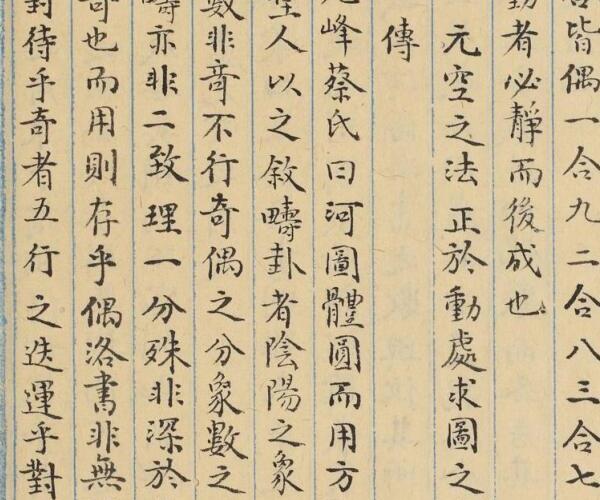 皆偶一合九二合八三合七
動者必靜而後成也
元空之法正於動處求圖之
傳
九峰蔡氏曰河圖體圓而用方
聖人以之敘疇卦者陰陽之象
數非竒不行奇偶之分象數之
疇亦非二致理一分殊非深於
奇也而用則存乎偶洛書非無
對待乎奇者五行之迭運乎對